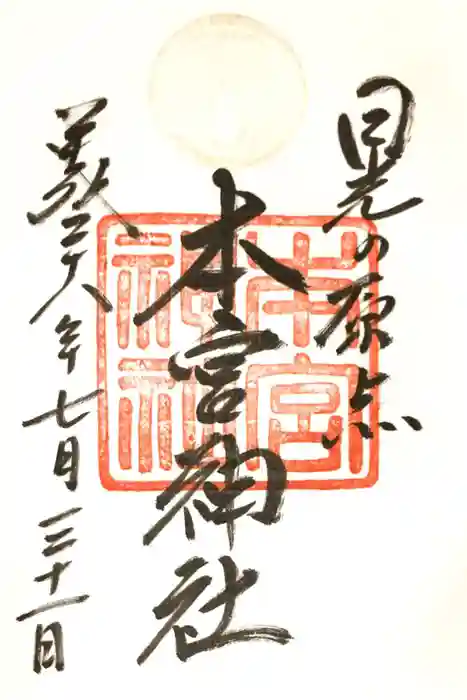 日光の原点
本宮神社
本宮
神社
平成二十八年七月三十一日